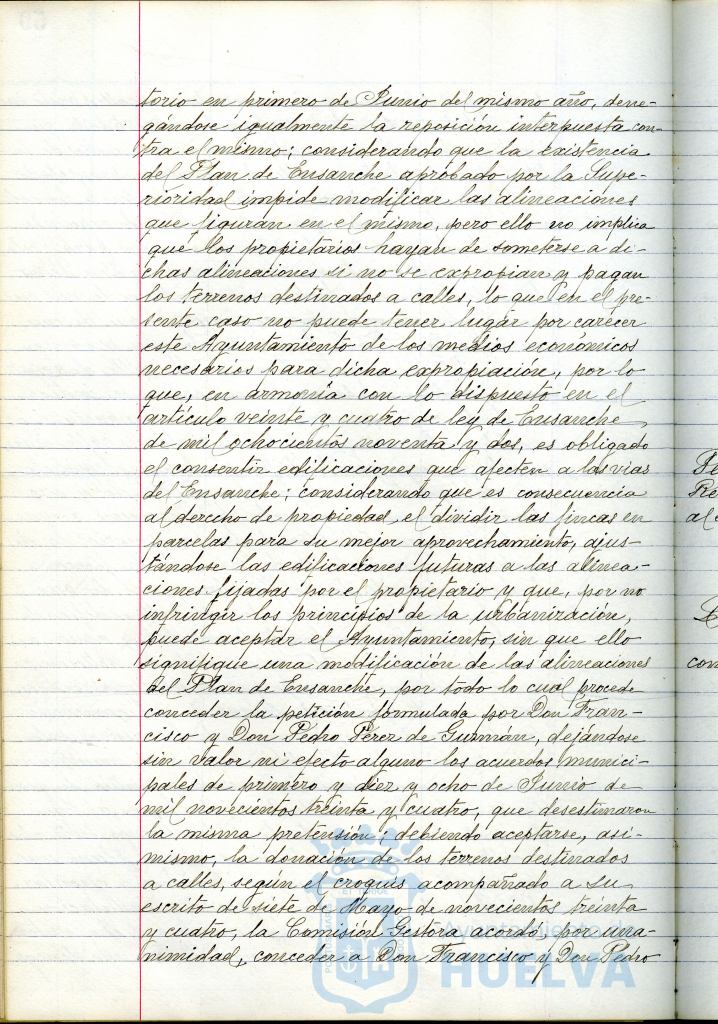 torio en primero de Junio del mismo año, dene-
gándose igualmente la reposición interpuesta con-
tra el mismo; considerando que la existencia
del Plan de Ensanche aprobado por la Supe-
rioridad impide modificar las alineaciones
que figuran en el mismo, pero ello no implica
que los propietarios hayan de someterse a di-
chas alineaciones si no se expropian y pagan
los terrenos destinados a calles, lo que en el pre-
sente caso no puede tener lugar por carecer
este Ayuntamiento de los medios económicos
necesarios para dicha expropiación, por lo
que, en armonía con lo dispuesto en el
artículo veinte y cuatro de ley de Ensanche
de mil ochocientos noventa y dos, es obligado
el consentir edificaciones que afecten a las vias
del Ensanche; considerando que es consecuencia
al derecho de propiedad, el dividir las fincas en
parcelas para su mejor aprovechamiento, ajus-
tándose las edificaciones futuras a las alinea-
ciones fijadas por el propietario y que, por no
infringir los principios de la urbanización,
puede aceptar el Ayuntamiento, sin que ello
signifique una modificación de las alineaciones
del Plan de Ensanche, por todo lo cual procede
conceder la petición formulada por Don Fran-
cisco y Don Pedro Pérez de Guzmán, dejándose
sin valor ni efecto alguno los acuerdos munici-
pales de primero y diez y ocho de Junio de
mil novecientos treinta y cuatro, que desestimaron
la misma pretensión; debiendo aceptarse, asi-
mismo, la donación de los terrenos destinados
a calles, según el croquis acompañado a su
escrito de siete de Mayo de novecientos treinta
y cuatro, la Comisión Gestora acordó, por una-
nimidad, conceder a Don Francisco y Don Pedro
HUELVA
Pe
Re
al
con